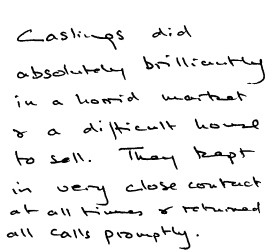 Castings did
absolutely brilliantly
in a horrid market
& a difficult house
to sell. They kept
in very close contact
at all times & returned
all calls promptly.